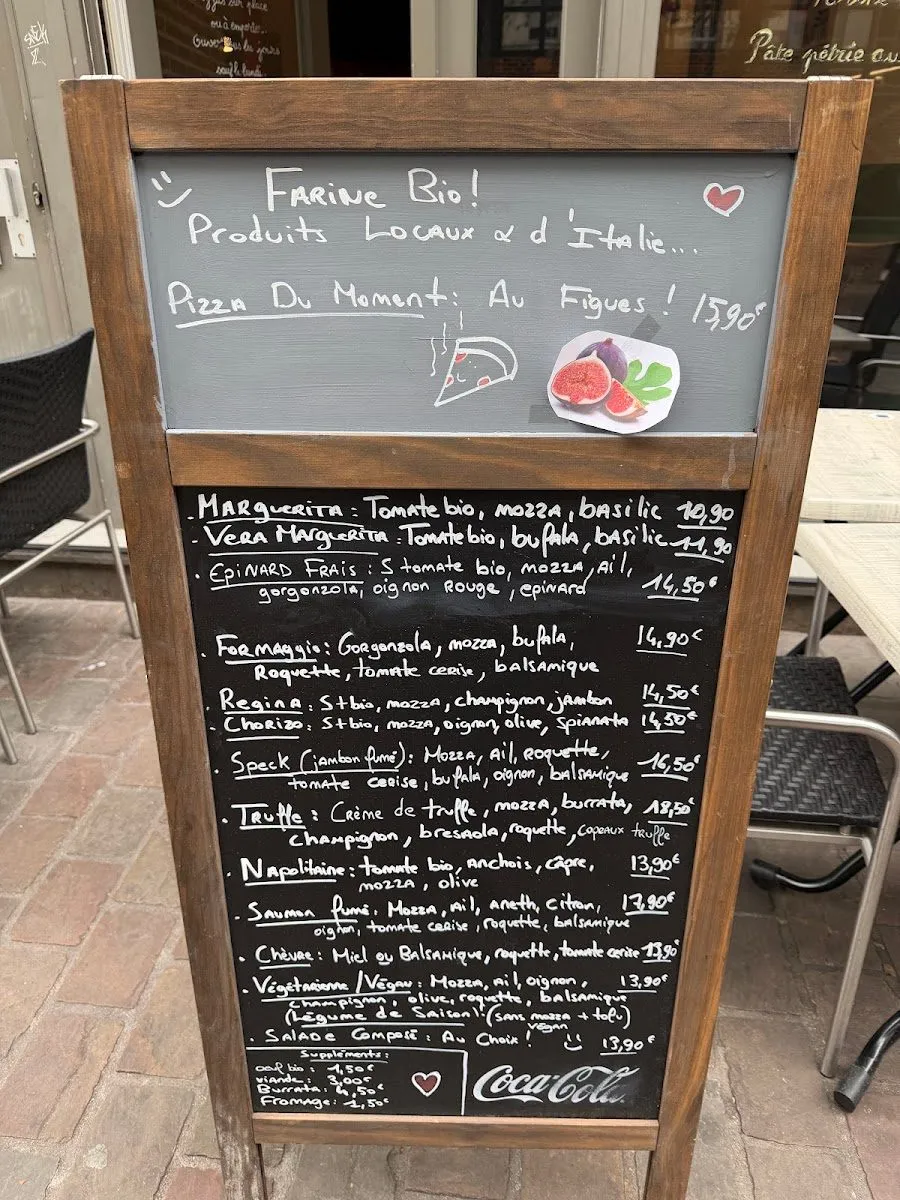 sur place
ou à emporter..
Ouvert tous les jours
sauf le lundi.
Pâte pétrie au
Farine Bio!
Produits Locaux & d'Italie...
Pizza Du Moment: Au Figues! 15,90€
. Marguerita: Tomate bio, mozza, basilic 10,90
. Vera Marguerita: Tomate bio, bufala, basilic 11,90
. Epinard Frais: S tomate bio, mozza, ail, 14,50€
gorgonzola, oignon rouge, epinard
. Formaggio: Gorgonzola, mozza, bufala, 14,90€
Roquette, tomate cerise, balsamique
. Regina: S+bio, mozza, champignon, jambon 14,50€
. Chorizo: S+bio, mozza, oignon, olive, spianata 14,50€
. Speck (jambon fumé): Mozza, ail, roquette, 16,50€
tomate cerise, bufala, oignon, balsamique
. Truffe: Crème de truffe, mozza, burrata, 18,50€
champignon, bresaola, roquette, copeaux truffe
. Napolitaine: tomate bio, anchois, câpre, 13,90€
mozza, olive
. Saumon fumé: Mozza, ail, aneth, citron, 17,90€
oignon, tomate cerise, roquette, balsamique
. Chèvre: Miel ou Balsamique, roquette, tomate cerise 13,90
. Végétarienne/Végan: Mozza, ail, oignon, 13,90€
champignon, olive, roquette, balsamique
(Légume de Saison!) (sans mozza + tofu)
vegan
. Salade Composé: Au Choix! 13,90€
Suppléments:
oeuf bio: 1,50€
viande: 3,00€
Burrata: 4,50€
Fromage: 1,50€
Coca-Cola